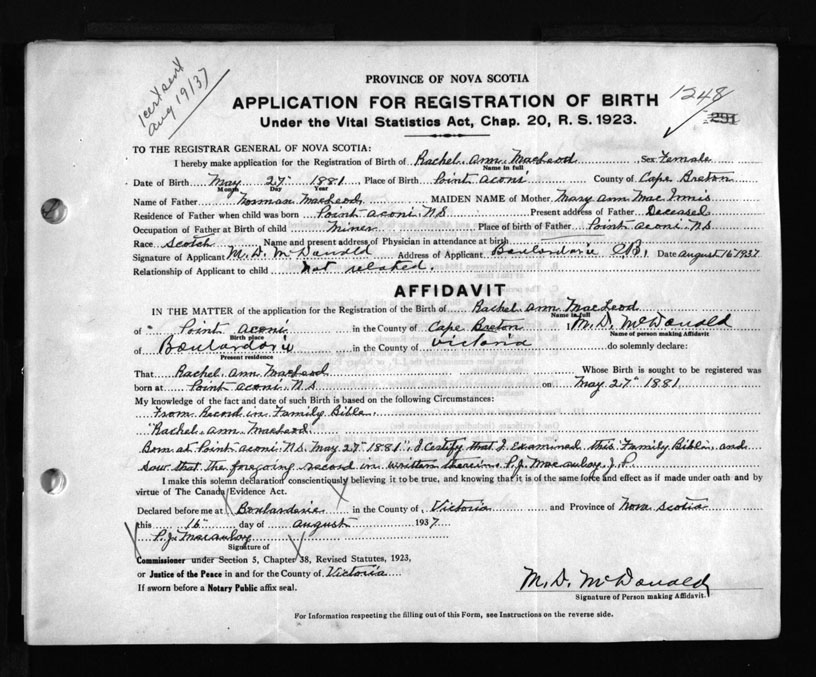 1 cert sent
Aug 19/37
PROVINCE OF NOVA SCOTIA
APPLICATION FOR REGISTRATION OF BIRTH
1248
Under the Vital Statistics Act, Chap. 20, R. S. 1923.
291
TO THE REGISTRAR GENERAL OF NOVA SCOTIA:
I hereby make application for the Registration of Birth of Rachel Ann MacLeod Sex Female
Name in full
Date of Birth May 27th 1881 Place of Birth Point Aconi County of Cape Breton
Month Day Year
Name of Father Norman MacLeod MAIDEN NAME of Mother Mary Ann Mac Innis
Residence of Father when child was born Point Aconi N.S Present address of Father Deceased
Occupation of Father at Birth of child Miner Place of birth of Father Point Aconi N.S
Race Scotch Name and present address of Physician in attendance at birth
Signature of Applicant M. D. McDonald Address of Applicant Boulardarie C.B. Date August 16th 1937
Relationship of Applicant to child Not related.
AFFIDAVIT
IN THE MATTER of the application for the Registration of the Birth of Rachel Ann MacLeod
Name in full
of Point Aconi in the County of Cape Breton I, M. D. McDonald
Birth place Name of person making Affidavit
of Boulardarie in the County of Victoria do solemnly declare:
Present residence
That Rachel Ann MacLeod Whose Birth is sought to be registered was
born at Point Aconi N.S on May 27th 1881
My knowledge of the fact and date of such Birth is based on the following Circumstances:
From Record in Family Bible.
"Rachel Ann MacLeod
Born at Point Aconi N.S May 27th 1881" I Certify that I Examined this Family Bible and
saw that the foregoing record is written therein P. J. Macaulay J. P.
I make this solemn declaration conscientiously believing it to be true, and knowing that it is of the same force and effect as if made under oath and by
virtue of The Canada Evidence Act.
Declared before me at Boulardarie in the County of Victoria and Province of Nova Scotia
this 16th day of August 1937
P. J. Macaulay
Signature of
Commissioner under Section 5, Chapter 38, Revised Statutes, 1923,
or Justice of the Peace in and for the County of Victoria
If sworn before a Notary Public affix seal.
M. D. McDonald
Signature of Person making Affidavit.
For Information respecting the filling out of this Form, see Instructions on the reverse side.